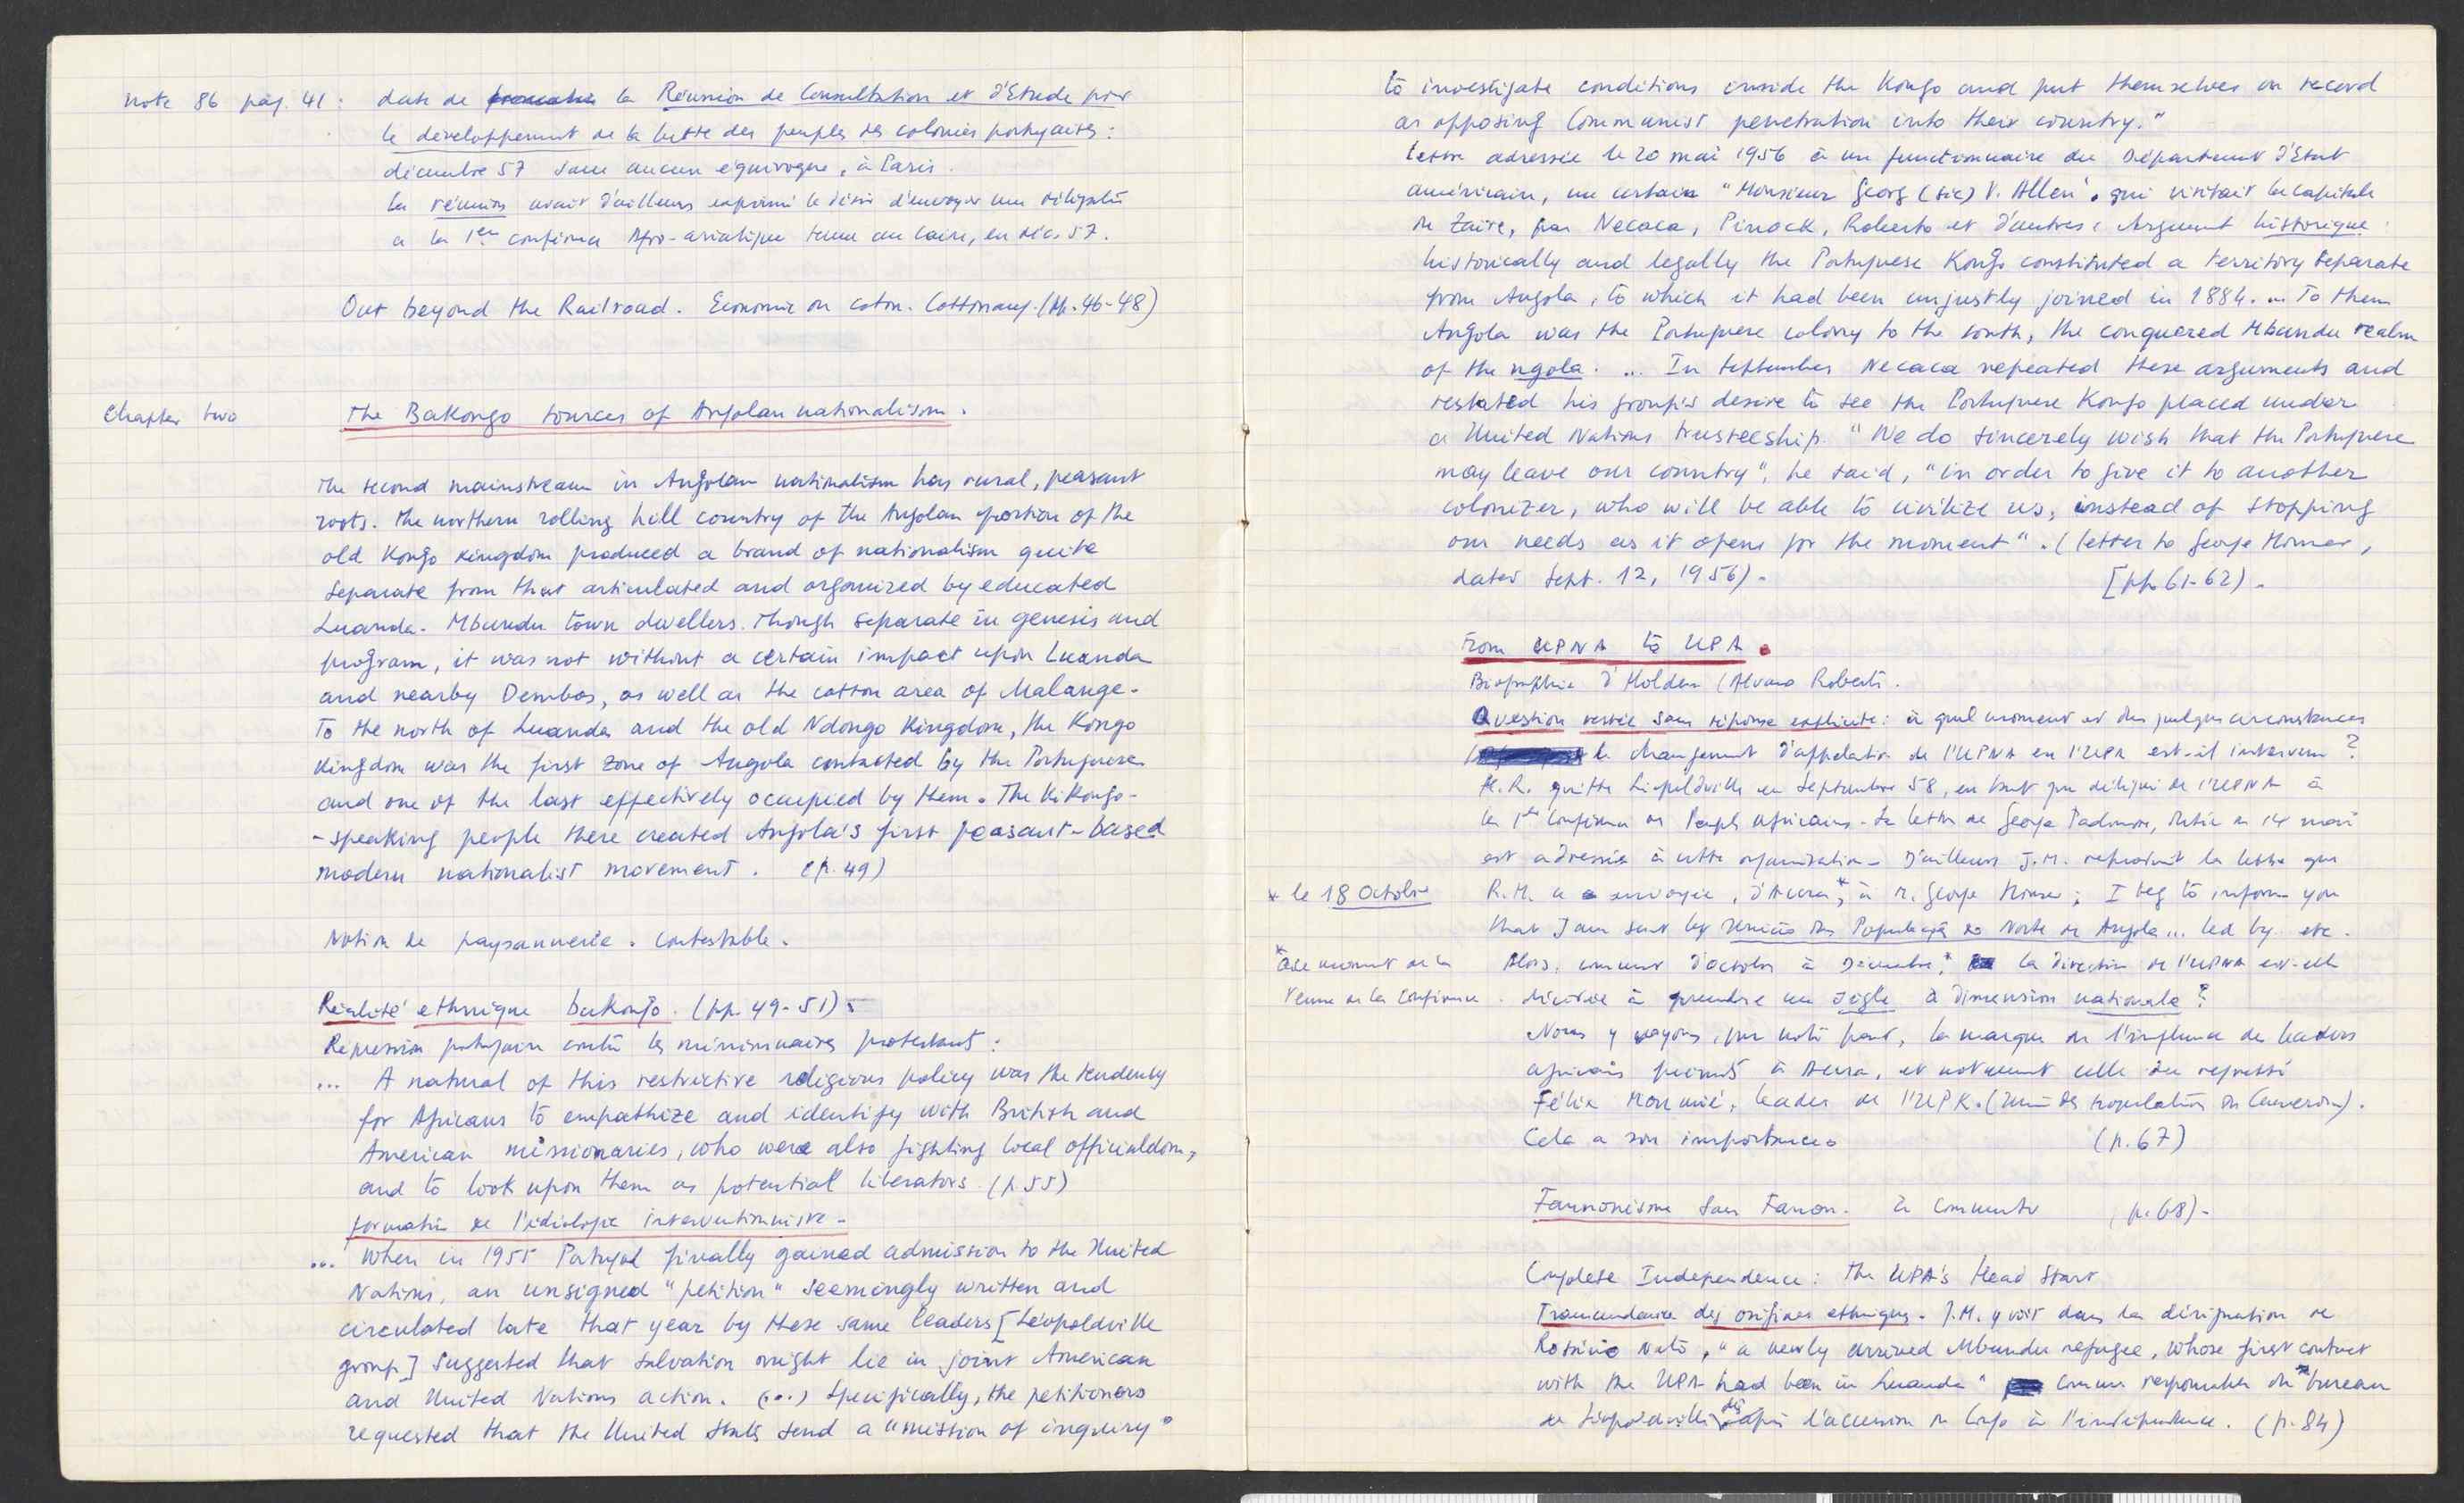 note 86 pag. 41 : date de la Réunion de Consultation et d'Etude pour
le développement de la lutte des peuples des colonies portugaises :
décembre 57 sans aucun équivoque, à Paris.
La réunion avait d'ailleurs exprimé le désir d'envoyer une délégation
à la 1ère conférence Afro-asiatique tenue au Caire, en déc. 57.
Out beyond the Railroad. Economie du coton. Cottonang. (pp. 46-48)
Chapter two The Bakongo sources of Angolan nationalism.
The second mainstream in Angolan nationalism has rural, peasant
roots. The northern rolling hill country of the Angolan portion of the
old Kongo kingdom produced a brand of nationalism quite
separate from that articulated and organized by educated
Luanda-Mbundu town dwellers. Though separate in genesis and
program, it was not without a certain impact upon Luanda
and nearby Dembos, as well as the cotton area of Malange.
To the north of Luanda and the old Ndongo Kingdom, the Kongo
Kingdom was the first zone of Angola contacted by the Portuguese
and one of the last effectively occupied by them. The KiKongo-
-speaking people there created Angola's first peasant-based
modern nationalist movement. (p. 49)
Notion de paysannerie. Contestable.
Réalité ethnique bakongo. (pp. 49-51).
Répression portugaise contre les missionnaires protestants :
... A natural of this restrictive religious policy was the tendency
for Africans to empathize and identify with British and
American missionaries, who were also fighting local officialdom,
and to look upon them as potential liberators (p. 55)
formation de l'idéologie interventionniste -
... When in 1955 Portugal finally gained admission to the United
Nations, an unsigned "petition" seemingly written and
circulated late that year by these same leaders [Léopoldville
group] suggested that salvation might lie in joint American
and United Nations action. (...) Specifically, the petitioners
requested that the United States send a "mission of inquiry"
to investigate conditions inside the Kongo and put themselves on record
as opposing Communist penetration into their country."
Lettre adressée le 20 mai 1956 à un fonctionnaire du Département d'Etat
américain, un certain "Monsieur Georg (sic) V. Allen", qui visitait la capitale
du Zaïre, par Necaca, Pinock, Roberto et d'autres : Argument historique :
historically and legally the Portuguese Kongo constituted a territory separate
from Angola, to which it had been unjustly joined in 1884. ... To them
Angola was the Portuguese colony to the south, the conquered Mbundu realm
of the ngola. ... In September Necaca repeated these arguments and
restated his group's desire to see the Portuguese Kongo placed under
a United Nations trusteeship. "We do sincerely wish that the Portuguese
may leave our country", he said, "in order to give it to another
colonizer, who will be able to civilize us, instead of stopping
our needs as it opens for the moment". (letter to George Houser,
dated Sept. 12, 1956). [pp. 61-62).
From UPNA to UPA.
Biographie d'Holden (Alvaro Roberto).
Question restée sans réponse explicite : à quel moment et dans quelques circonstances
le changement d'appelation de l'UPNA en l'UPA est-il intervenu ?
H.R. quitte Léopoldville en Septembre 58, en tant que délégué de l'UPNA à
la 1ère Conférence des Peuples africains. La lettre de George Padmore, datée du 14 mai
est adressée à cette organisation. D'ailleurs J.M. reproduit la lettre que
* le 18 Octobre
R.H. a envoyée, d'Accra*, à M. George Houser ; I beg to inform you
that I am sent by União das Populações do Norte de Angola ... led by etc.
* Au moment de la
tenue de la Conférence.
Alors, comment d'octobre à Décembre*, la direction de l'UPNA est-elle
décidée à prendre un sigle à dimension nationale ?
Nous y voyons, pour notre part, la marque de l'influence des leaders
africains présents à Accra, et notamment celle du regretté
Félix Moumié, leader de l'UPC. (Union des populations du Cameroun).
Cela a son importance. (p. 67)
Fannonisme sans Fanon. à commenter (p. 68).
Complete Independence : The UPA's Head Start
Transcendance des origines ethniques. J.M. y voit dans la désignation de
Rosário Neto, "a newly arrived Mbundu refugee, whose first contact
with the UPA had been in Luanda" comme responsable du bureau
de Léopoldville dès après l'accession du Congo à l'indépendance. (p. 84)